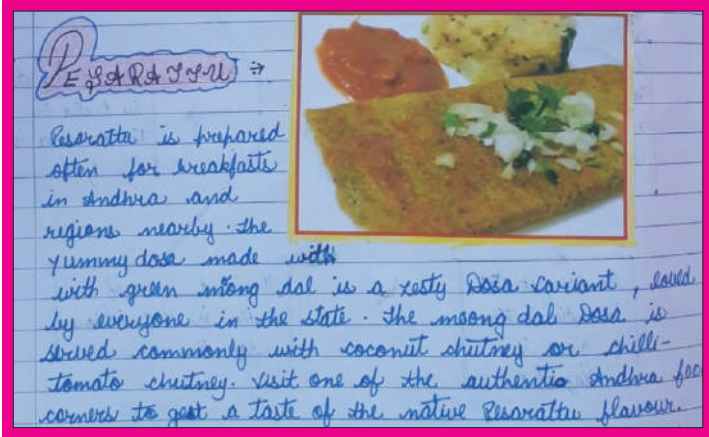 PESARATTU :→
Pesaratta is prepared
often for breakfasts
in Andhra and
regions nearby. The
yummy dosa made with
with green moong dal is a zesty Dosa variant, loved
by everyone in the state. The moong dal Dosa is
served commonly with coconut chutney or chilli-
tomato chutney. Visit one of the authentic Andhra foo
corners to get a taste of the native Pesarattu flavour.